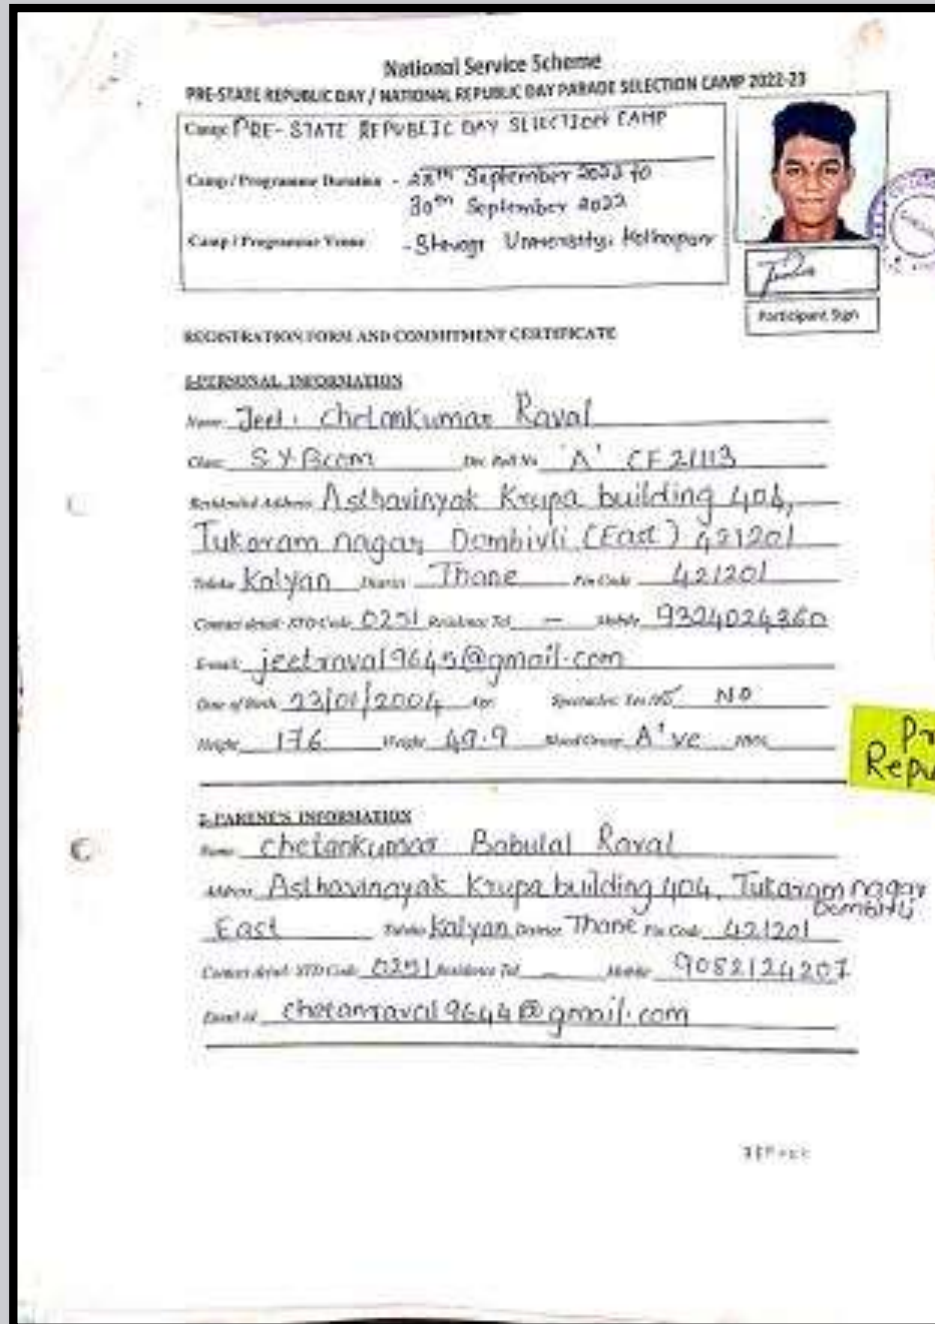 National Service Scheme
PRE-STATE REPUBLIC DAY / NATIONAL REPUBLIC DAY PARADE SELECTION CAMP 2022-23
Camp: PRE-STATE REPUBLIC DAY SELECTION CAMP
Camp / Programme Duration - September 2022 to
30th September 2022
Camp / Programme Venue - University, Kolhapur
Participant Sign
REGISTRATION FORM AND COMMITMENT CERTIFICATE
1-PERSONAL INFORMATION
Name Jeet. Chetankumar Raval
Class S Y Bcom Div. Roll No 'A' CF21113
Residential Address: Asthavinyak Krupa building 404,
Tukaram nagar, Dombivli (East) 421201
Taluka Kalyan District Thane Pin Code 421201
Contact detail- STD Code 0251 Residence Tel — Mobile 9324024360
E-mail: jeetraval9645@gmail.com
Date of Birth 23/01/2004 Age Spectacles: Yes/No NO
Height 176 Weight 49.9 Blood Group A+ve
2-PARENT'S INFORMATION
Name Chetankumar Babulal Raval
Address Asthavinayak Krupa building 404, Tukaram nagar
Dombivli
East Taluka Kalyan District Thane Pin Code 421201
Contact detail- STD Code 0251 Residence Tel — Mobile 9082124207
Email id chetanraval9644@gmail.com